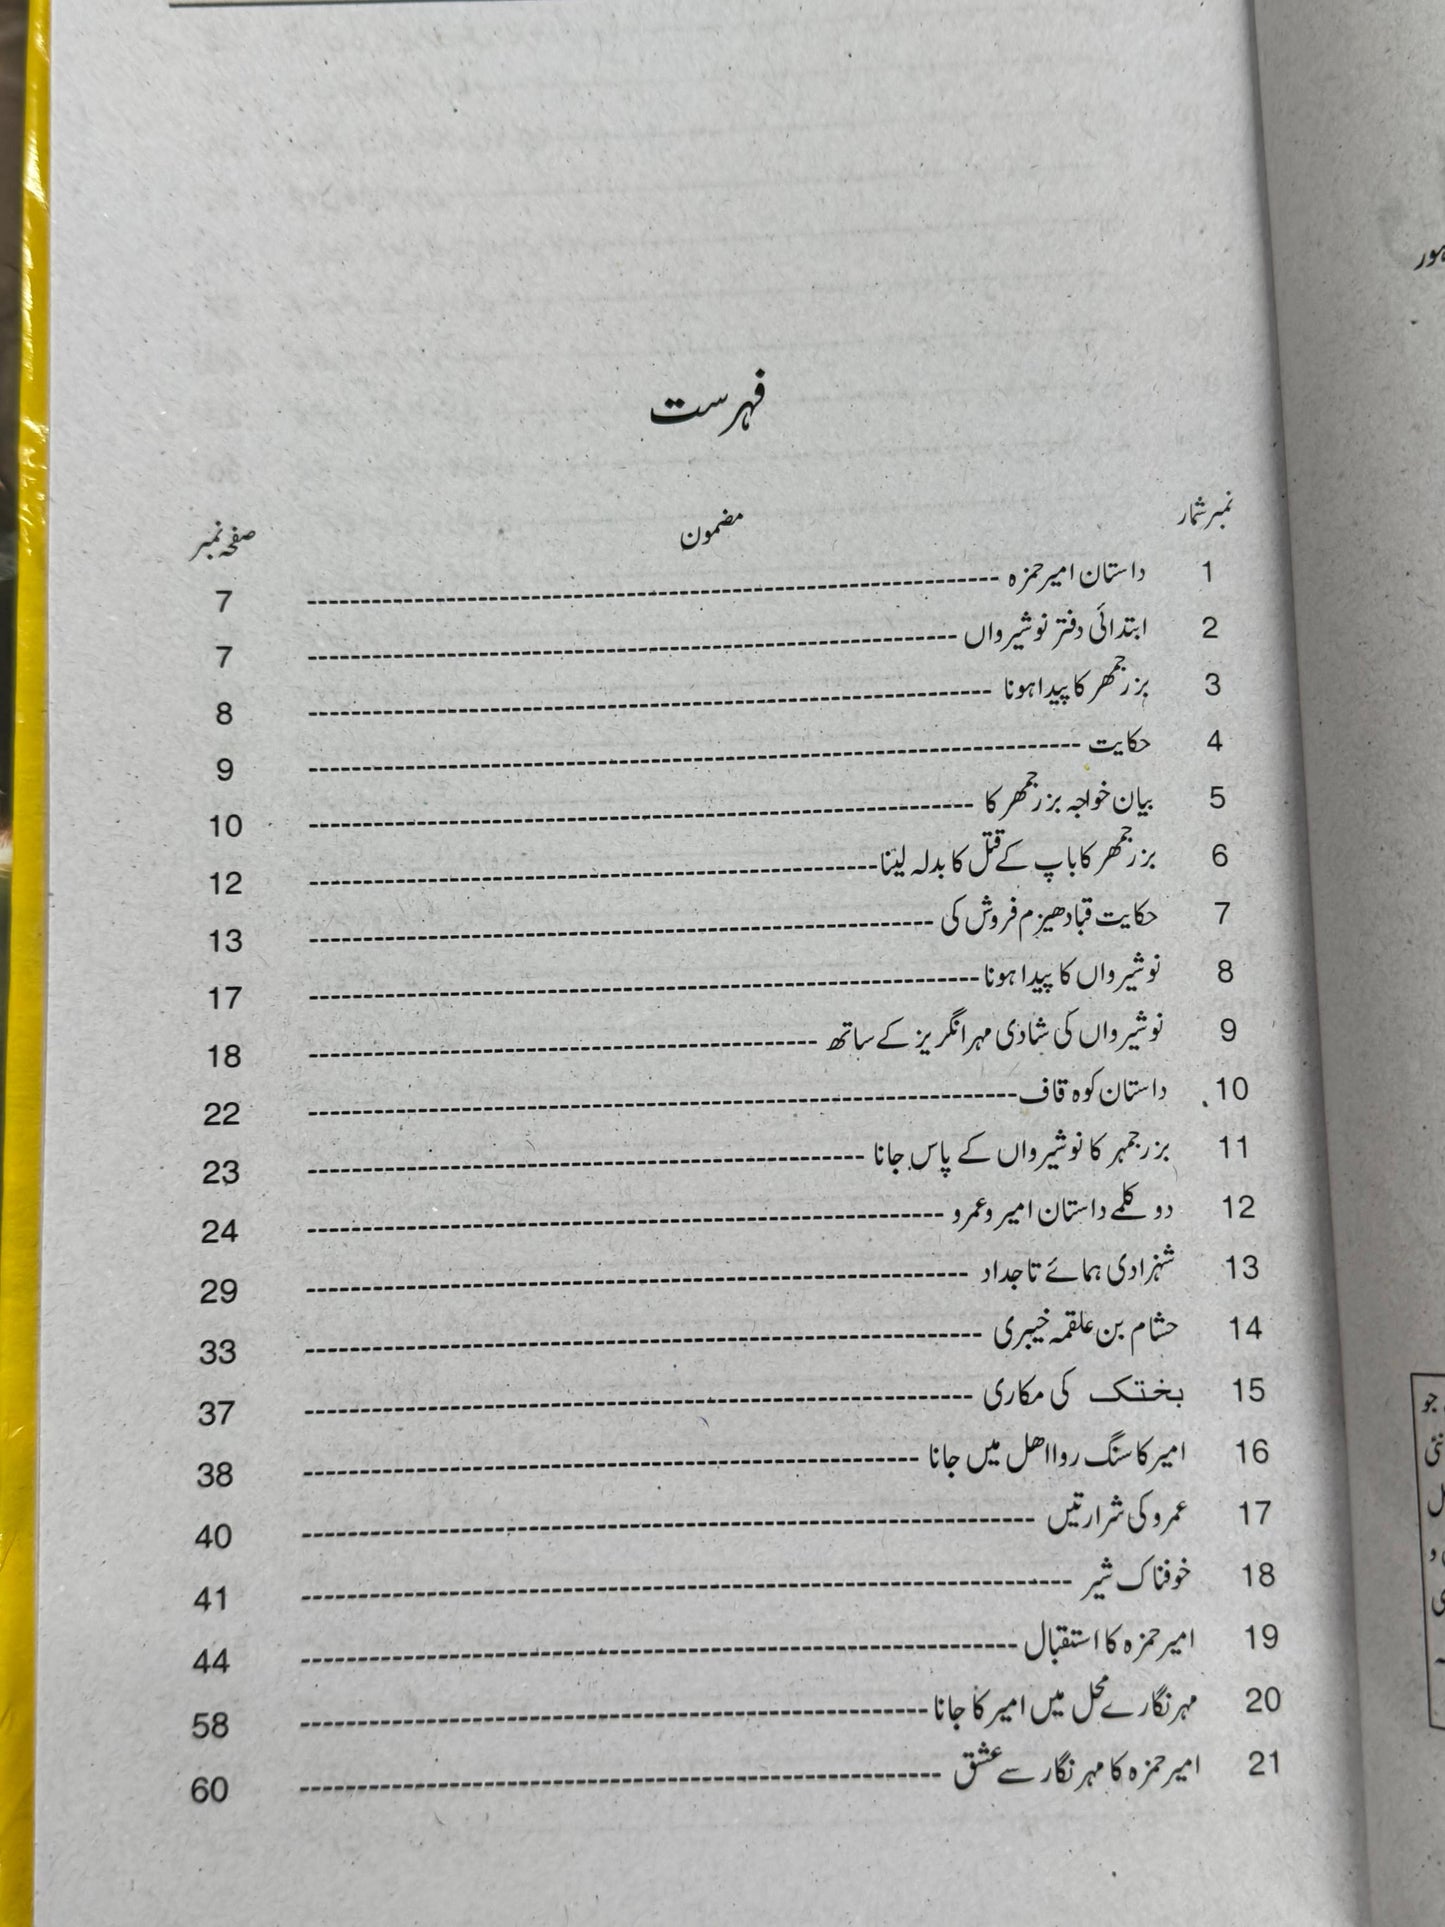 فہرست
نمبر شمار مضمون صفحہ نمبر
1 داستان امیر حمزہ 7
2 ابتدائی دفتر نوشیرواں 7
3 بزرجمھر کا پیدا ہونا 8
4 حکایت 9
5 بیان خواجہ بزرجمھر کا 10
6 بزرجمھر کا باپ کے قتل کا بدلہ لینا 12
7 حکایت قباد ھیزم فروش کی 13
8 نوشیرواں کا پیدا ہونا 17
9 نوشیرواں کی شادی مہر انگریز کے ساتھ 18
10 داستان کوہ قاف 22
11 بزرجمہر کا نوشیرواں کے پاس جانا 23
12 دو کلمے داستان امیر و عمرو 24
13 شہزادی ہمائے تاجداد 29
14 حشام بن علقمہ خیبری 33
15 بختک کی مکاری 37
16 امیر کا سنگ رواا ھل میں جانا 38
17 عمرو کی شرارتیں 40
18 خوفناک شیر 41
19 امیر حمزہ کا استقبال 44
20 مہر نگار ے محل میں امیر کا جانا 58
21 امیر حمزہ کا مہر نگار سے عشق 60
ہور
جو
نئی